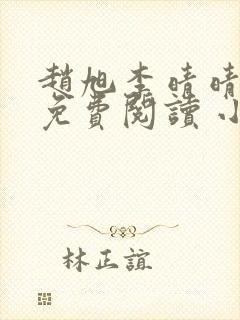 趙旭李晴晴
免費閱讀小
林正誼